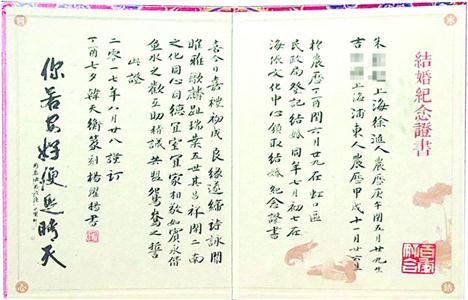 結婚紀念證書
朱 上海徐滙人農歷庚午閏五月廿九生
吉 上海浦東人農歷甲戌十一月廿六生
於農歷丁酉閏六月廿九在虹口區
民政局登記結婚同年七月初七在
海派文化中心領取結婚紀念證書
百年好合
喜今日嘉禮初成良緣遂締詩詠關
雎雅歌麟趾瑞葉五世其昌祥開二南
之化同心同德宜室宜家相敬如賓永偕
魚水之歡互助精誠共盟鴛鴦之誓
此證
二零一七年八月廿八證訂
丁酉七夕韓天衡篆刻楊耀揚書
你若安好便是晴天